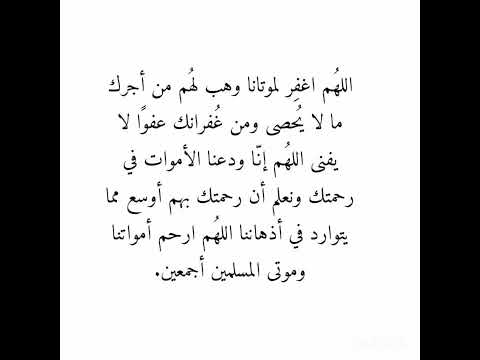 اللهُم اغفِر لموتانا وهب لهُم من أجرك
ما لا يُحصى ومن غُفرانك عفوًا لا
يفنى اللهُم إنّا ودعنا الأموات في
رحمتك ونعلم أن رحمتك بهم أوسع مما
يتوارد في أذهاننا اللهُم ارحم أمواتنا
وموتى المسلمين أجمعين.